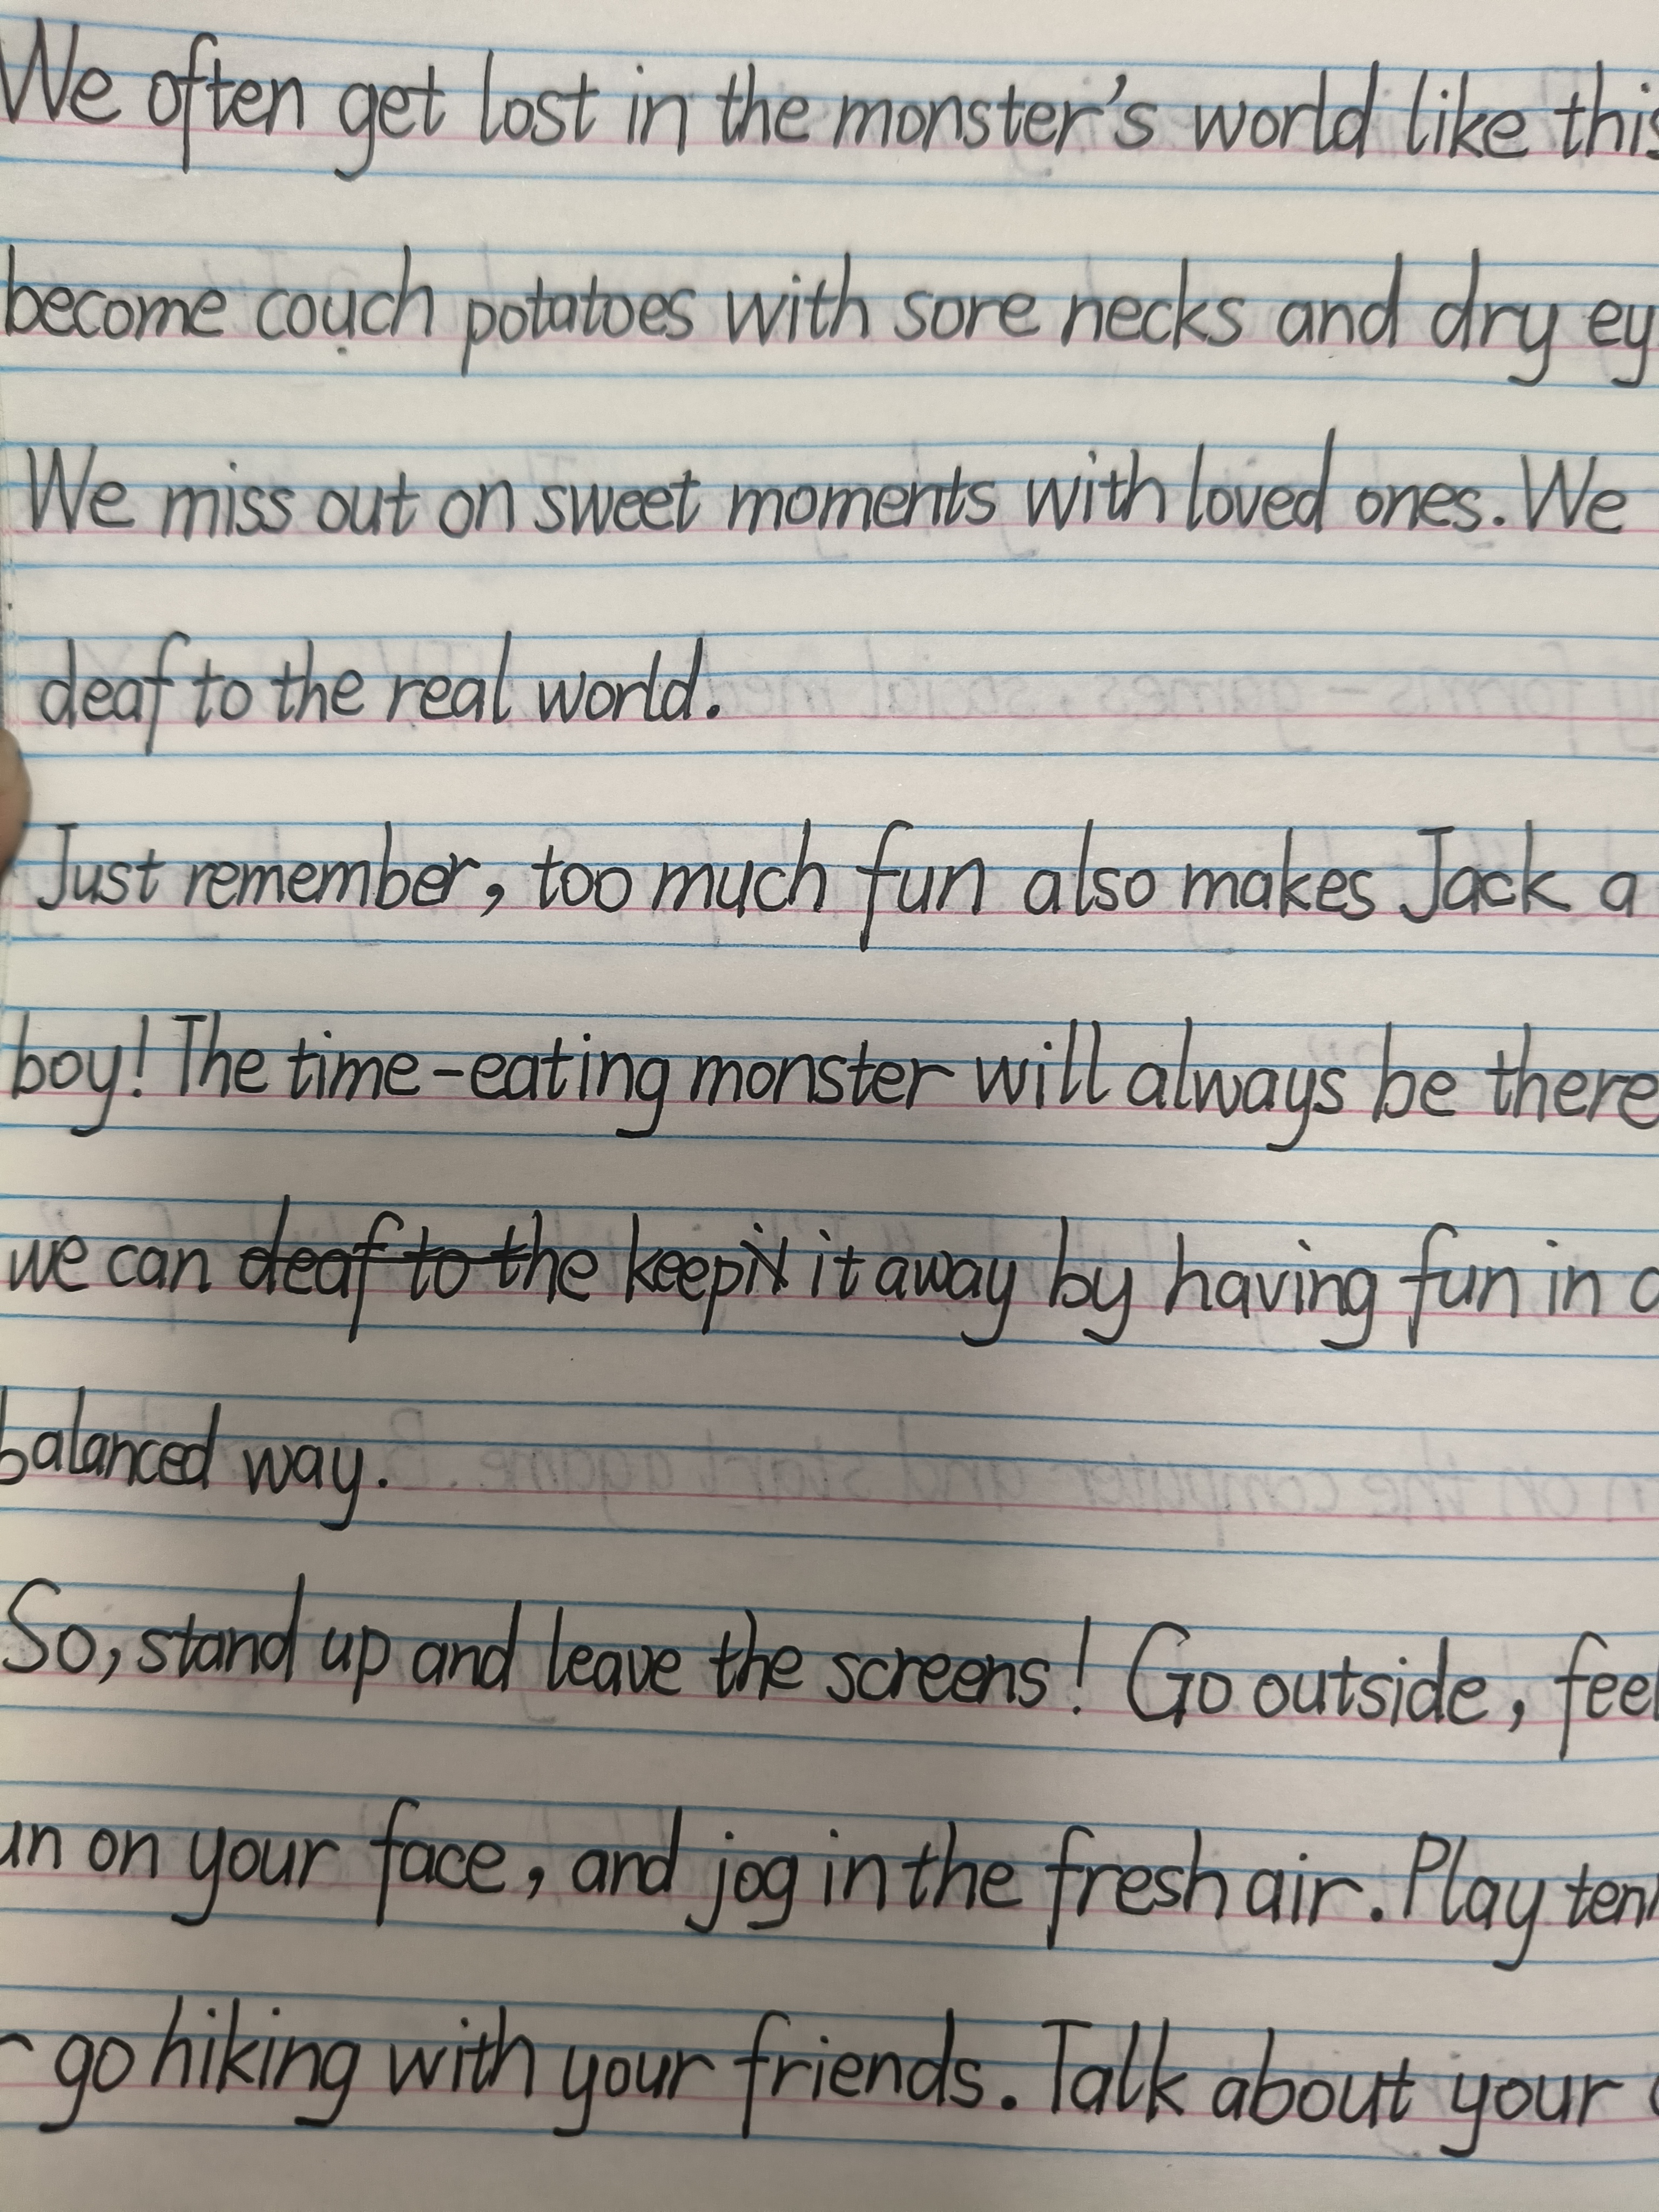 We often get lost in the monster's world like this
become couch potatoes with sore necks and dry ey
We miss out on sweet moments with loved ones. We
deaf to the real world.
Just remember, too much fun also makes Jack a
boy! The time-eating monster will always be there
we can deaf to the keep it it away by having fun in a
balanced way.
So, stand up and leave the screens! Go outside, feel
un on your face, and jog in the fresh air. Play ten
go hiking with your friends. Talk about your